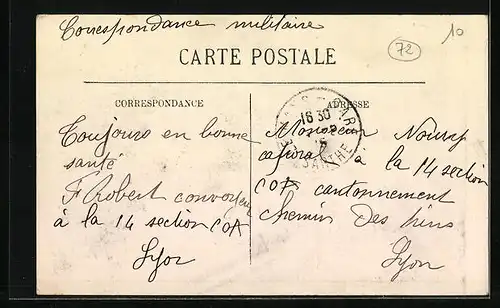 Correspondance militaire
72
10
CARTE POSTALE
CORRESPONDANCE
ADRESSE
16 30
SARTHE
Toujours en bonne
santé
F Robert convoyeur
à la 14 section COA
Lyon
Monsieur
caporal à la 14 section
COA cantonnement
chemin des pins
Lyon